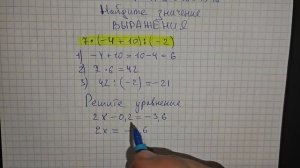 Найдите значение
ВЫРАЖЕНИЯ
7•(-4+10):(-2)
1) -4+10=10-4=6
2) 7·6=42
3) 42:(-2)=-21
Решите уравнение
2x-0,2=-3,6
2x= - ,6